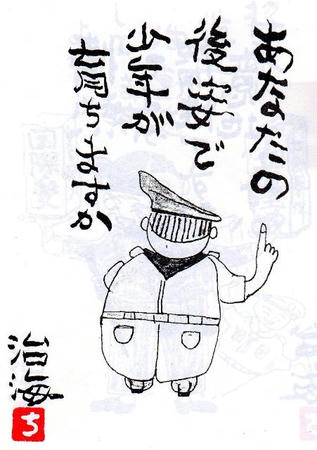 あなたの
後姿で
少年が
育ちますか
治海
ち